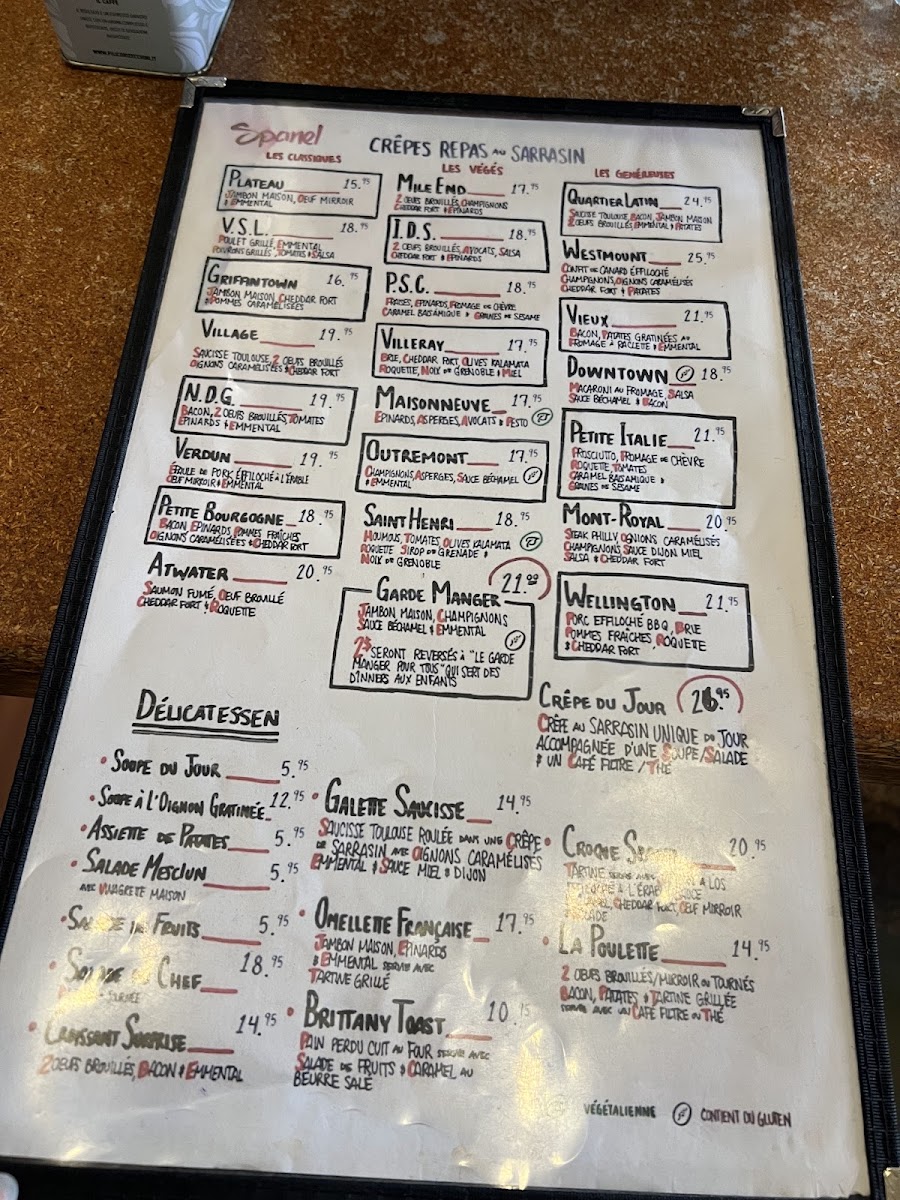 WWW.
Spanel
CRÊPES REPAS AU SARRASIN
LES CLASSIQUES
PLATEAU 15.95
JAMBON MAISON, OEUF MIRROIR
& EMMENTAL
V.S.L. 18.95
POULET GRILLÉ, EMMENTAL
POIVRONS GRILLÉS, TOMATES & SALSA
GRIFFINTOWN 16.95
JAMBON MAISON, CHEDDAR FORT
& POMMES CARAMELISÉES
VILLAGE 19.95
SAUCISSE TOULOUSE, 2 OEUFS BROUILLÉS
OIGNONS CARAMELISÉES & CHEDDAR FORT
N.D.G. 19.95
BACON, 2 OEUFS BROUILLÉS, TOMATES
EPINARDS & EMMENTAL
VERDUN 19.95
ÉPAULE DE PORK EFFILOCHÉ À L'ÉRABLE
OEUF MIRROIR & EMMENTAL
PETITE BOURGOGNE 18.95
BACON, EPINARDS POMMES FRAÎCHES
OIGNONS CARAMELISÉES & CHEDDAR FORT
ATWATER 20.95
SAUMON FUMÉ, OEUF BROUILLÉ
CHEDDAR FORT & ROQUETTE
LES VÉGÉS
MILE END 17.95
2 OEUFS BROUILLÉS, CHAMPIGNONS
CHEDDAR FORT & EPINARDS
I.D.S. 18.95
2 OEUFS BROUILLÉS, AVOCATS, SALSA
CHEDDAR FORT & EPINARDS
P.S.C. 18.95
FRAISES, EPINARDS, FROMAGE DE CHÈVRE
CARAMEL BALSAMIQUE & GRAINES DE SESAME
VILLERAY 17.95
BRIE, CHEDDAR FORT, OLIVES KALAMATA
ROQUETTE, NOIX DE GRENOBLE & MIEL
MAISONNEUVE 17.95
EPINARDS, ASPERGES, AVOCATS & PESTO
OUTREMONT 17.95
CHAMPIGNONS, ASPERGES, SAUCE BÉCHAMEL
& EMMENTAL
SAINT HENRI 18.95
HOUMOUS, TOMATES, OLIVES KALAMATA
ROQUETTE SIROP DE GRENADE &
NOIX DE GRENOBLE
21.99
GARDE MANGER
JAMBON MAISON, CHAMPIGNONS
SAUCE BÉCHAMEL & EMMENTAL
SERONT REVERSÉS À "LE GARDE
MANGER POUR TOUS" QUI SERT DES
DINNERS AUX ENFANTS
LES GÉNÉREUSES
QUARTIER LATIN 24.95
SAUCISSE TOULOUSE, BACON, JAMBON MAISON
2 OEUFS BROUILLÉS, EMMENTAL & PATATES
WESTMOUNT 25.95
CONFIT DE CANARD ÉFFILOCHÉ
CHAMPIGNONS, OIGNONS CARAMÉLISÉS
CHEDDAR FORT & PATATES
VIEUX 21.95
BACON, PATATES GRATINÉES AU
FROMAGE À RACLETTE & EMMENTAL
DOWNTOWN 18.95
MACARONI AU FROMAGE, SALSA
SAUCE BÉCHAMEL & BACON
PETITE ITALIE 21.95
PROSCIUTTO, FROMAGE DE CHÈVRE
ROQUETTE, TOMATES
CARAMEL BALSAMIQUE &
GRAINES DE SESAME
MONT-ROYAL 20.95
STEAK PHILLY, OIGNONS CARAMÉLISÉS
CHAMPIGNONS, SAUCE DIJON MIEL
SALSA & CHEDDAR FORT
WELLINGTON 21.95
PORC EFFILOCHÉ BBQ, BRIE
POMMES FRAICHES, ROQUETTE
& CHEDDAR FORT
CRÊPE DU JOUR 26.95
CRÊPE AU SARRASIN UNIQUE DU JOUR
ACCOMPAGNÉE D'UNE SOUPE/SALADE
& UN CAFÉ FILTRE / THÉ
DÉLICATESSEN
SOUPE DU JOUR 5.95
SOUPE À L'OIGNON GRATINÉE 12.95
ASSIETTE DE PATATES 5.95
SALADE MESCLUN 5.95
AVEC VINAGRETTE MAISON
SALADE DE FRUITS 5.95
CHEF 18.95
CROISSANT SURPRISE 14.95
2 OEUFS BROUILLÉS, BACON & EMMENTAL
GALETTE SAUCISSE 14.95
SAUCISSE TOULOUSE ROULÉE DANS UNE CRÊPE
DE SARRASIN AVEC OIGNONS CARAMÉLISES
EMMENTAL & SAUCE MIEL & DIJON
OMELLETTE FRANÇAISE 17.95
JAMBON MAISON, EPINARDS
& EMMENTAL SERVIE AVEC
TARTINE GRILLÉ
BRITTANY TOAST 10.95
PAIN PERDU CUIT AU FOUR SERVIE AVEC
SALADE DE FRUITS & CARAMEL AU
BEURRE SALÉ
CROQUE 20.95
TARTINE À LOS
À L'ÉRABLE
CHEDDAR FORT, OEUF MIRROIR
LA POULETTE 14.95
2 OEUFS BROUILLÉS/MIRROIR OU TOURNÉS
BACON, PATATES & TARTINE GRILLÉE
SERVIE AVEC UN CAFÉ FILTRE OU THÉ
VÉGÉTALIENNE
CONTIENT DU GLUTEN